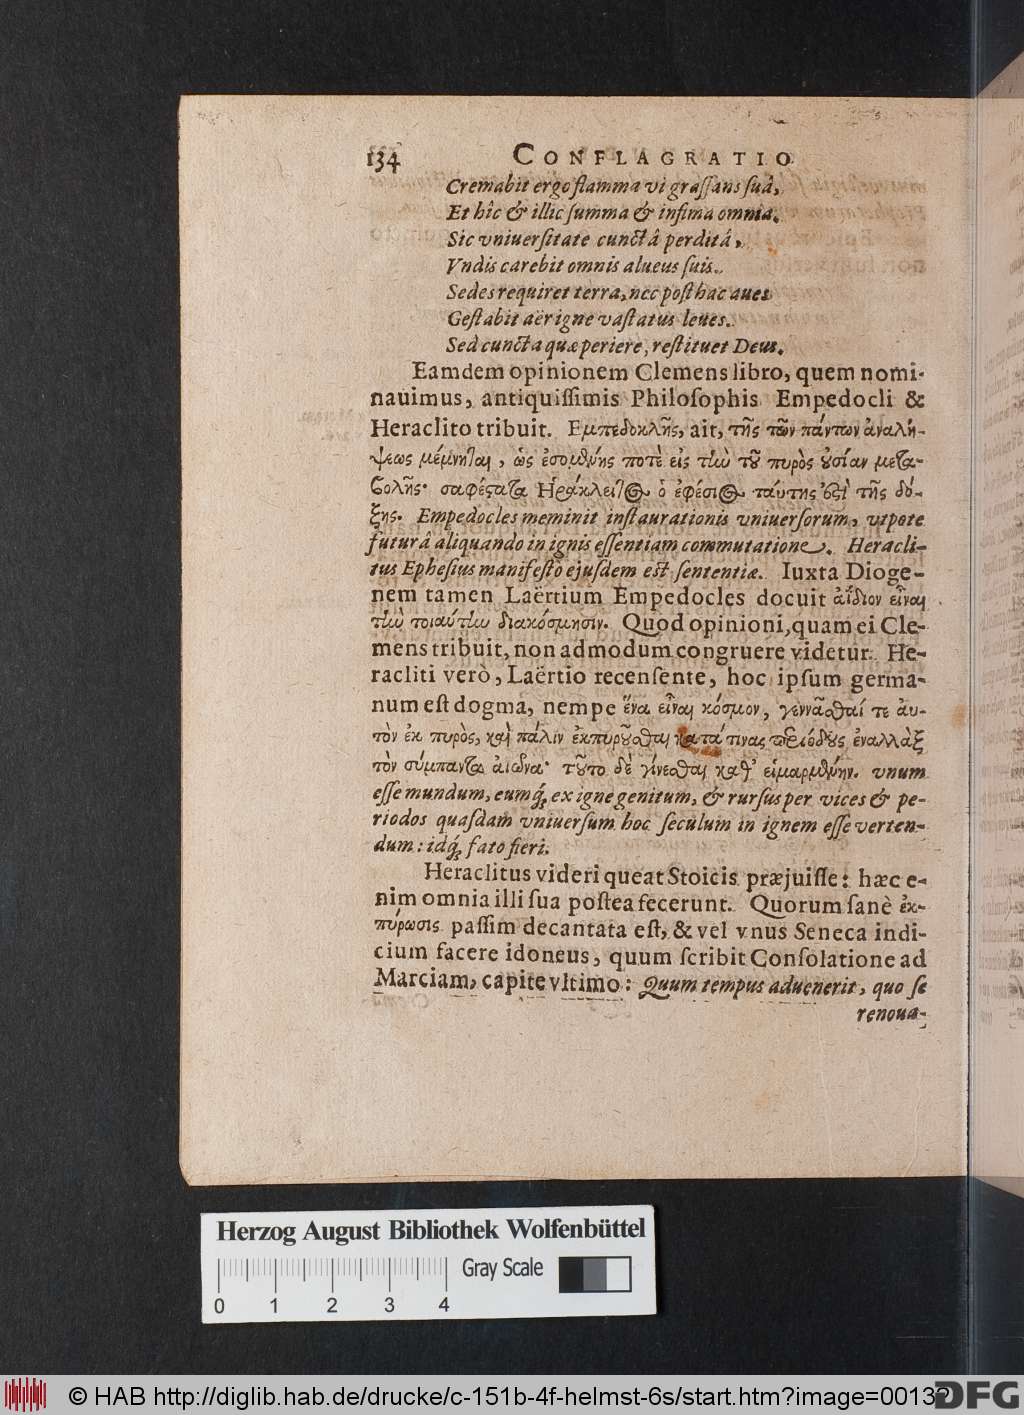 134 CONFLAGRATIO
Cremabit ergo flamma vi graſſans ſuâ,
Et hîc & illic ſumma & infima omnia.
Sic vniuerſitate cunctâ perditâ,
Vndis carebit omnis alueus ſuis.
Sedes requiret terra, nec poſthac aues
Geſtabit aër igne vaſtatus leues.
Sed cuncta quæ periere, reſtituet Deus.
Eamdem opinionem Clemens libro, quem nomi-
nauimus, antiquiſſimis Philoſophis Empedocli &
Heraclito tribuit. Εμπεδοκλῆς, ait, τῆς τῶν πάντων ἀναλή-
ψεως μέμνηται, ὡς ἐσομένης ποτὲ εἰς τὴν τοῦ πυρὸς οὐσίαν μετα-
βολῆς· σαφέστατα Ἡράκλειτος ὁ ἐφέσιος ταύτης ἐστὶ τῆς δό-
ξης. Empedocles meminit inſtaurationis vniuerſorum, vtpote
futurâ aliquando in ignis eſſentiam commutatione. Heracli-
tus Epheſius manifeſto ejuſdem eſt ſententiæ. Iuxta Dioge-
nem tamen Laërtium Empedocles docuit ἀΐδιον εἶναι
τὴν τοιαύτην διακόσμησιν. Quod opinioni, quam ei Cle-
mens tribuit, non admodum congruere videtur. He-
racliti verò, Laërtio recenſente, hoc ipſum germa-
num eſt dogma, nempe ἕνα εἶναι κόσμον, γεννᾶσθαί τε ἀυ-
τὸν ἐκ πυρὸς, καὶ πάλιν ἐκπυροῦσθαι κατά τινας περιόδους ἐναλλὰξ
τὸν σύμπαντα αἰῶνα· τοῦτο δὲ γίνεσθαι καθ' εἱμαρμένην. vnum
eſſe mundum, eumq́; ex igne genitum, & rurſus per vices & pe-
riodos quaſdam vniuerſum hoc ſeculum in ignem eſſe verten-
dum: idq́; fato fieri.
Heraclitus videri queat Stoicis præjuiſſe: hæc e-
nim omnia illi ſua poſtea fecerunt. Quorum ſanè ἐκ-
πύρωσις paſſim decantata eſt, & vel vnus Seneca indi-
cium facere idoneus, quum ſcribit Conſolatione ad
Marciam, capite vltimo: Quum tempus aduenerit, quo ſe
renoua-
Herzog August Bibliothek Wolfenbüttel
Gray Scale
0 1 2 3 4
© HAB http://diglib.hab.de/drucke/c-151b-4f-helmst-6s/start.htm?image=00132
DFG